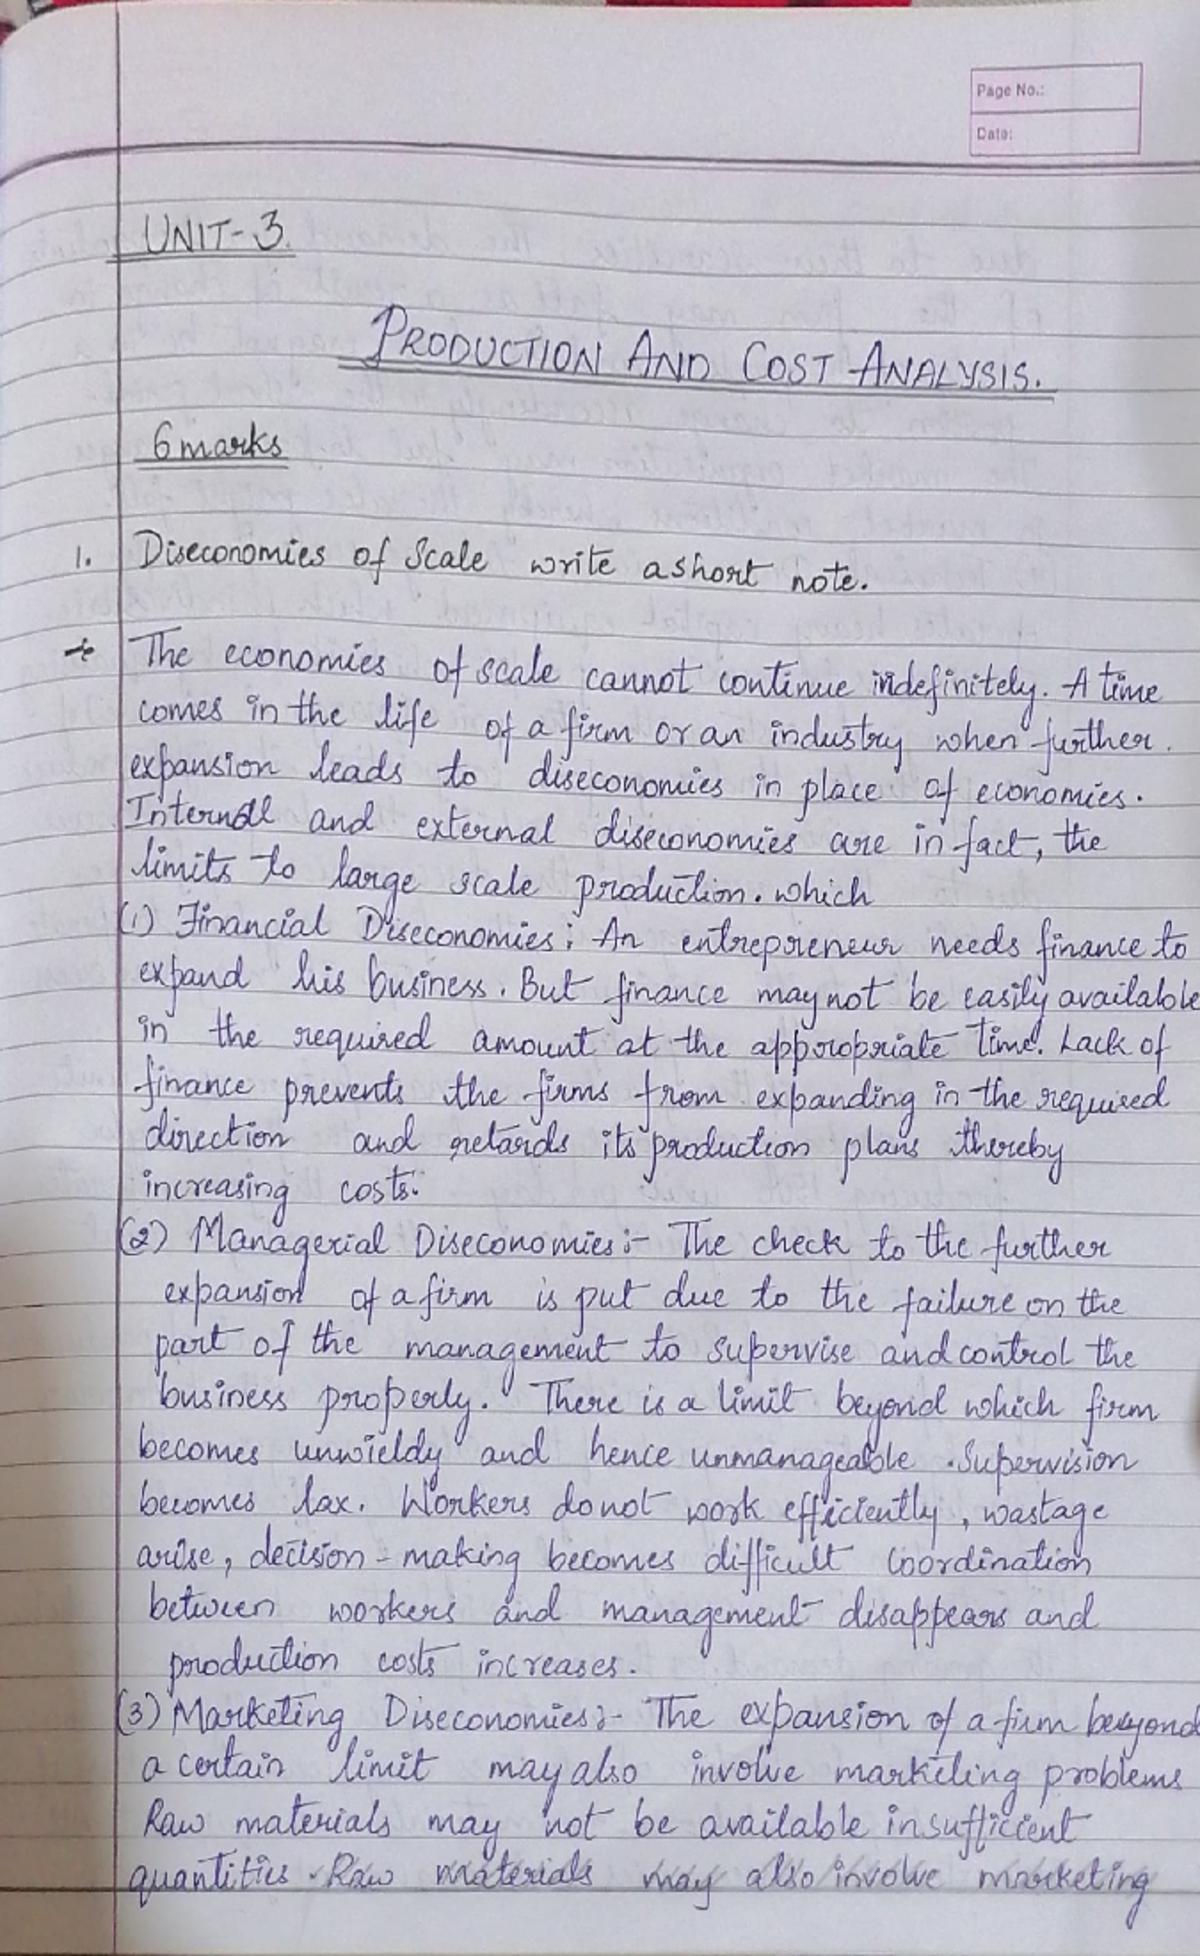 Page No.:
Date:
UNIT-3.
PRODUCTION AND COST ANALYSIS.
6 marks
1. Diseconomies of Scale write a short note.
The economies of scale cannot continue indefinitely. A time
comes in the life of a firm or an industry when further.
expansion leads to diseconomies in place of economies.
Internal and external diseconomies are in fact, the
limits to large scale production. which
(1) Financial Diseconomies: An entrepreneur needs finance to
expand his business. But finance may not be easily available
in the required amount at the appropriate time. Lack of
finance prevents the firms from expanding in the required
direction and retards its production plans thereby
increasing costs.
(2) Managerial Diseconomies:- The check to the further
expansion of a firm is put due to the failure on the
part of the management to supervise and control the
business properly. There is a limit beyond which firm
becomes unwieldy and hence unmanageable. Supervision
becomes lax. Workers do not work efficiently, wastage
arise, decision-making becomes difficult coordination
between workers and management disappears and
production costs increases.
(3) Marketing Diseconomies:- The expansion of a firm beyond
a certain limit may also involve marketing problems
Raw materials may not be available in sufficient
quantities. Raw materials may also involve marketing